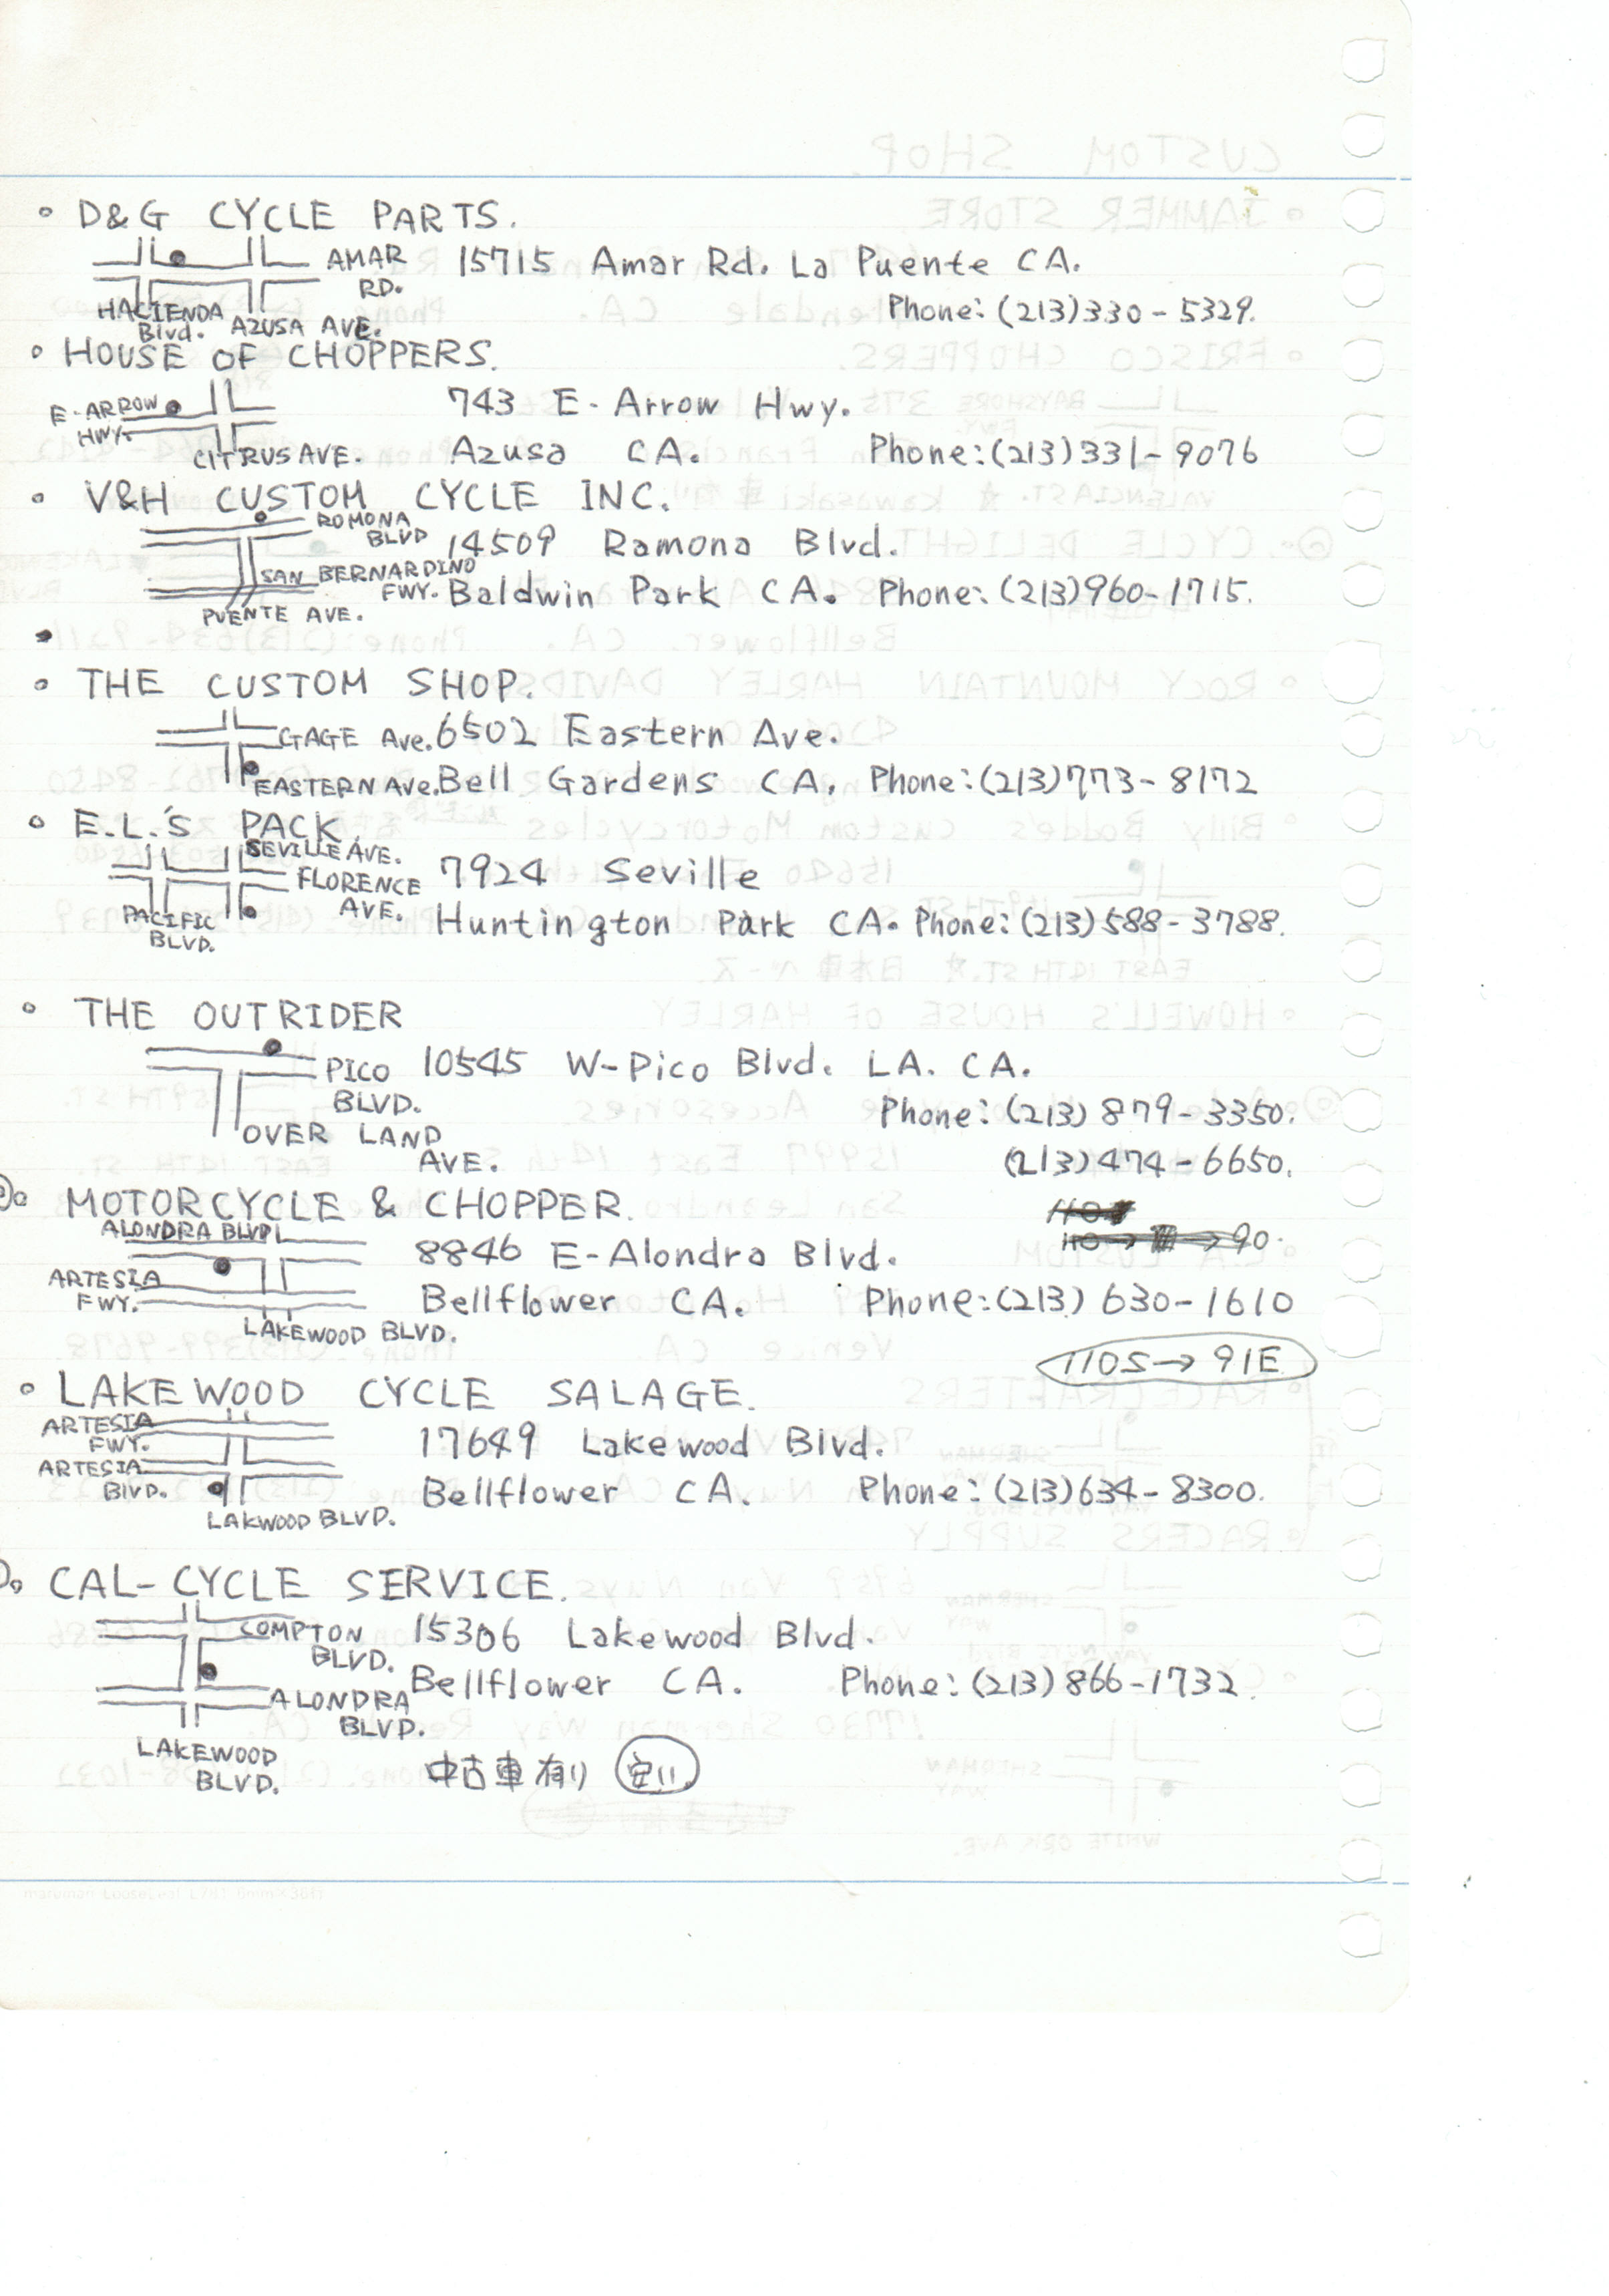 D&G CYCLE PARTS.
AMAR RD.
15715 Amar Rd. La Puente CA.
HACIENDA Blvd.
AZUSA AVE.
Phone: (213)330-5329.
HOUSE OF CHOPPERS.
E-ARROW HWY.
743 E-Arrow Hwy.
CITRUS AVE.
Azusa CA. Phone: (213)331-9076
V&H CUSTOM CYCLE INC.
ROMONA BLVD
14509 Ramona Blvd.
SAN BERNARDINO FWY.
Baldwin Park CA. Phone: (213)960-1715.
PUENTE AVE.
THE CUSTOM SHOP.
GAGE Ave.
6502 Eastern Ave.
EASTERN Ave.
Bell Gardens CA. Phone: (213)773-8172
E.L.'S PACK.
SEVILLE AVE.
FLORENCE AVE.
7924 Seville
PACIFIC BLVD.
Huntington Park CA. Phone: (213)588-3788.
THE OUTRIDER
PICO BLVD.
10545 W-Pico Blvd. LA. CA.
Phone: (213)879-3350.
OVER LAND AVE.
(213)474-6650.
MOTORCYCLE & CHOPPER.
ALONDRA BLVD
8846 E-Alondra Blvd.
90.
ARTESIA FWY.
Bellflower CA. Phone: (213) 630-1610
LAKEWOOD BLVD.
110S→91E
LAKEWOOD CYCLE SALAGE.
ARTESIA FWY.
17649 Lakewood Blvd.
ARTESIA Blvd.
Bellflower CA. Phone: (213)634-8300.
LAKWOOD BLVD.
CAL-CYCLE SERVICE.
COMPTON BLVD.
15306 Lakewood Blvd.
Bellflower CA. Phone: (213)866-1732.
ALONDRA BLVD.
LAKEWOOD BLVD.
中古車有り 安い